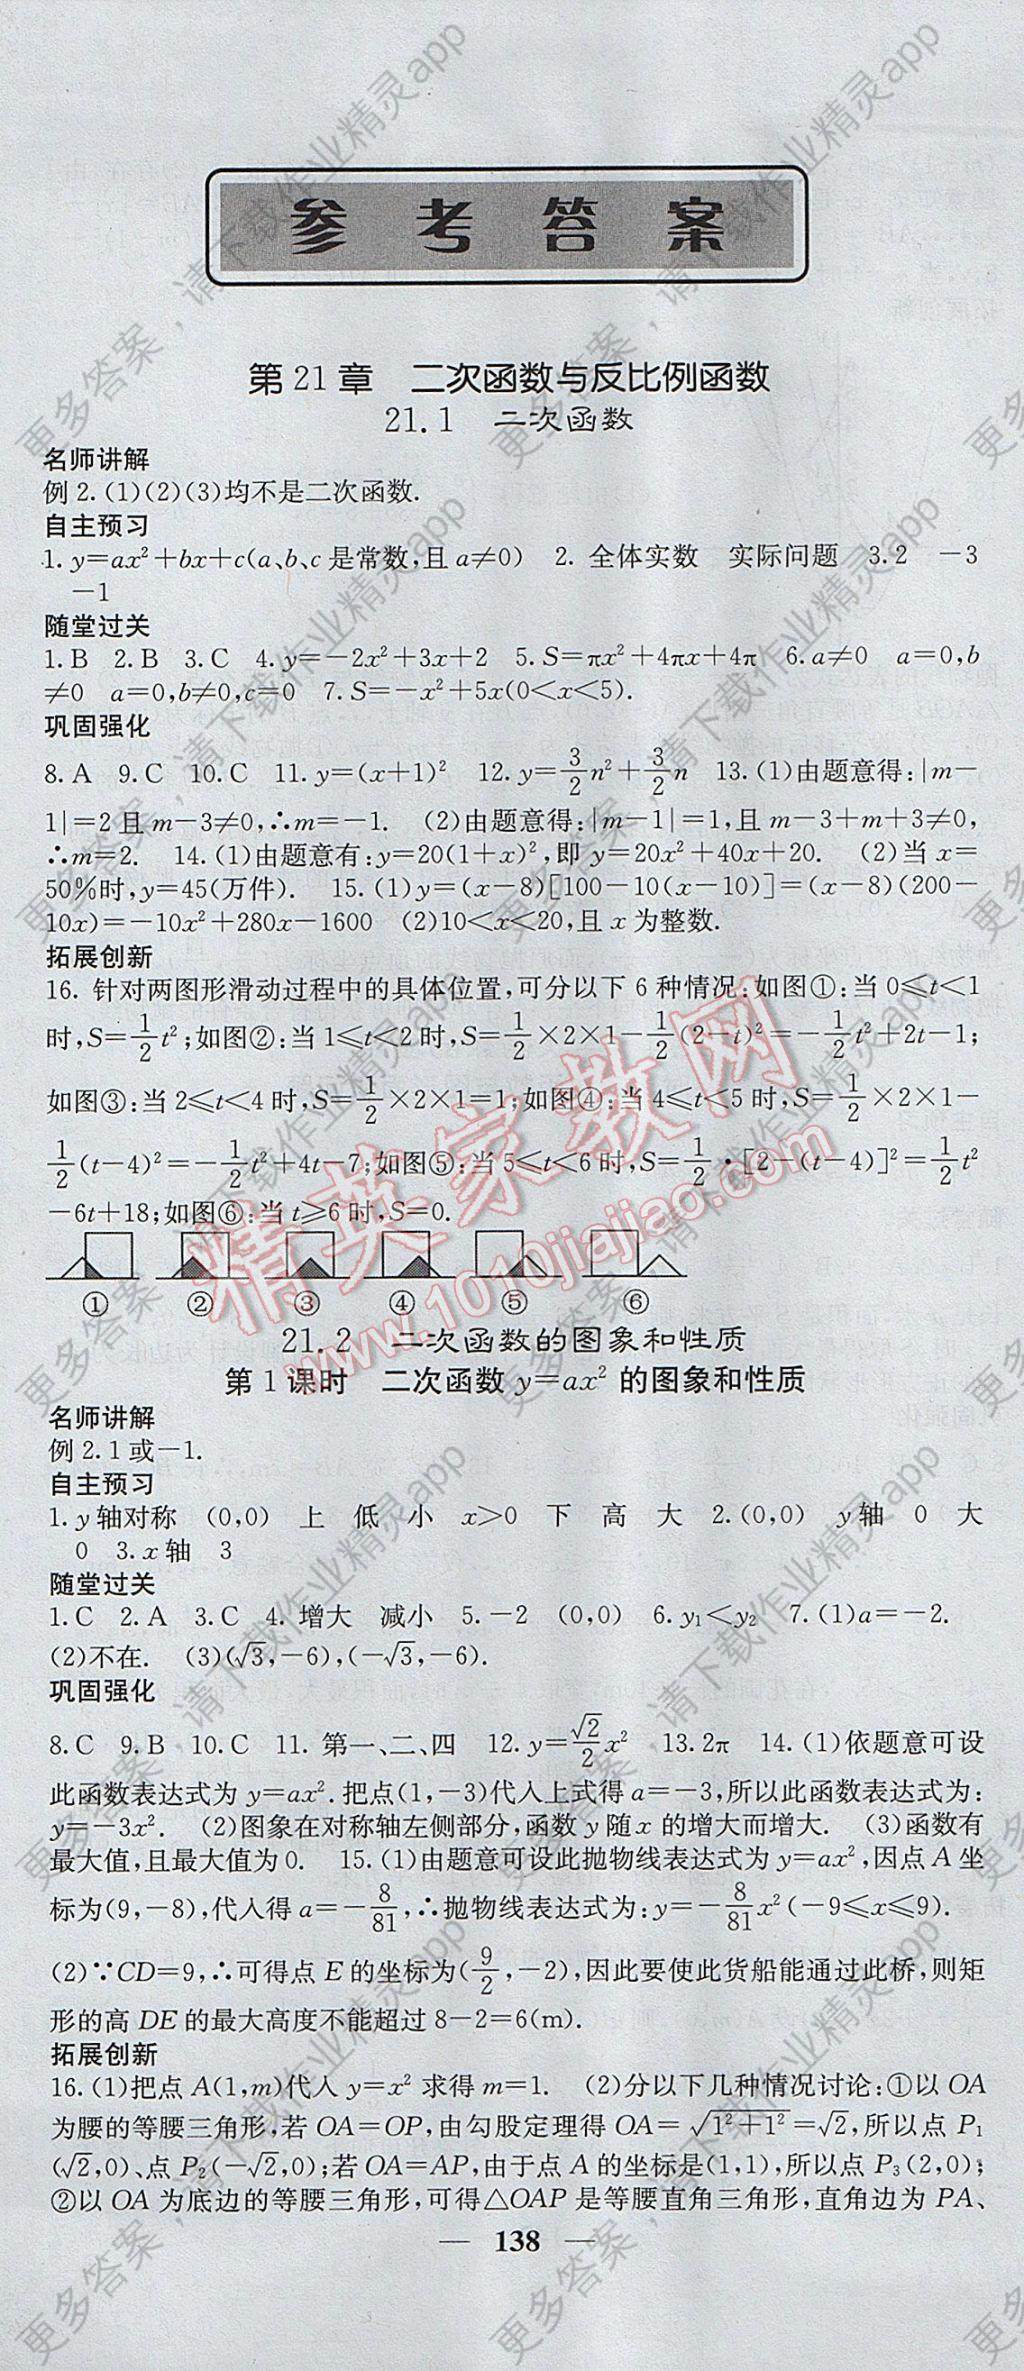 参考答案
第21章　二次函数与反比例函数
21.1　二次函数
名师讲解
例2.(1)(2)(3)均不是二次函数.
自主预习
1. y=ax²+bx+c(a、b、c是常数,且a≠0)　2. 全体实数　实际问题　3.2　-3
-1
随堂过关
1.B　2.B　3.C　4.y=-2x²+3x+2　5.S=πx²+4πx+4π　6.a≠0　a=0,b
≠0　a=0,b≠0,c=0　7.S=-x²+5x(0<x<5).
巩固强化
8.A　9.C　10.C　11.y=(x+1)²　12.y=3/2n²+3/2n　13.(1)由题意得:|m-
1|=2且m-3≠0,∴m=-1.　(2)由题意得:|m-1|=1,且m-3+m+3≠0,
∴m=2.　14.(1)由题意有:y=20(1+x)²,即y=20x²+40x+20.　(2)当x=
50%时,y=45(万件).　15.(1)y=(x-8)[100-10(x-10)]=(x-8)(200-
10x)=-10x²+280x-1600　(2)10<x<20,且x为整数.
拓展创新
16. 针对两图形滑动过程中的具体位置,可分以下6种情况:如图①:当0≤t<1
时,S=1/2t²;如图②:当1≤t<2时,S=1/2×2×1-1/2(2-t)²=-1/2t²+2t-1;
如图③:当2≤t<4时,S=1/2×2×1=1;如图④:当4≤t<5时,S=1/2×2×1-
1/2(t-4)²=-1/2t²+4t-7;如图⑤:当5≤t<6时,S=1/2·[2-(t-4)]²=1/2t²
-6t+18;如图⑥:当t≥6时,S=0.
①　②　③　④　⑤　⑥
21.2　二次函数的图象和性质
第1课时　二次函数y=ax²的图象和性质
名师讲解
例2.1或-1.
自主预习
1.y轴对称　(0,0)　上　低　小　x>0　下　高　大　2.(0,0)　y轴　0　大
0　3.x轴　3
随堂过关
1.C　2.A　3.C　4. 增大　减小　5.-2　(0,0)　6.y₁<y₂　7.(1)a=-2.
(2)不在.　(3)(√3,-6),(-√3,-6).
巩固强化
8.C　9.B　10.C　11. 第一、二、四　12.y=√2/2x²　13.2π　14.(1)依题意可设
此函数表达式为y=ax².把点(1,-3)代入上式得a=-3,所以此函数表达式为:
y=-3x².　(2)图象在对称轴左侧部分,函数y随x的增大而增大.　(3)函数有
最大值,且最大值为0.　15.(1)由题意可设此抛物线表达式为y=ax²,因点A坐
标为(9,-8),代入得a=-8/81,∴抛物线表达式为:y=-8/81x²(-9≤x≤9).
(2)∵CD=9,∴可得点E的坐标为(9/2,-2),因此要使此货船能通过此桥,则矩
形的高DE的最大高度不能超过8-2=6(m).
拓展创新
16.(1)把点A(1,m)代入y=x²求得m=1.　(2)分以下几种情况讨论:①以OA
为腰的等腰三角形,若OA=OP,由勾股定理得OA=√(1²+1²)=√2,所以点P₁
(√2,0)、点P₂(-√2,0);若OA=AP,由于点A的坐标是(1,1),所以点P₃(2,0);
②以OA为底边的等腰三角形,可得△OAP是等腰直角三角形,直角边为PA、
— 138 —
精英家教网
www.1010jiajiao.com
更多答案,请下载作业精灵app